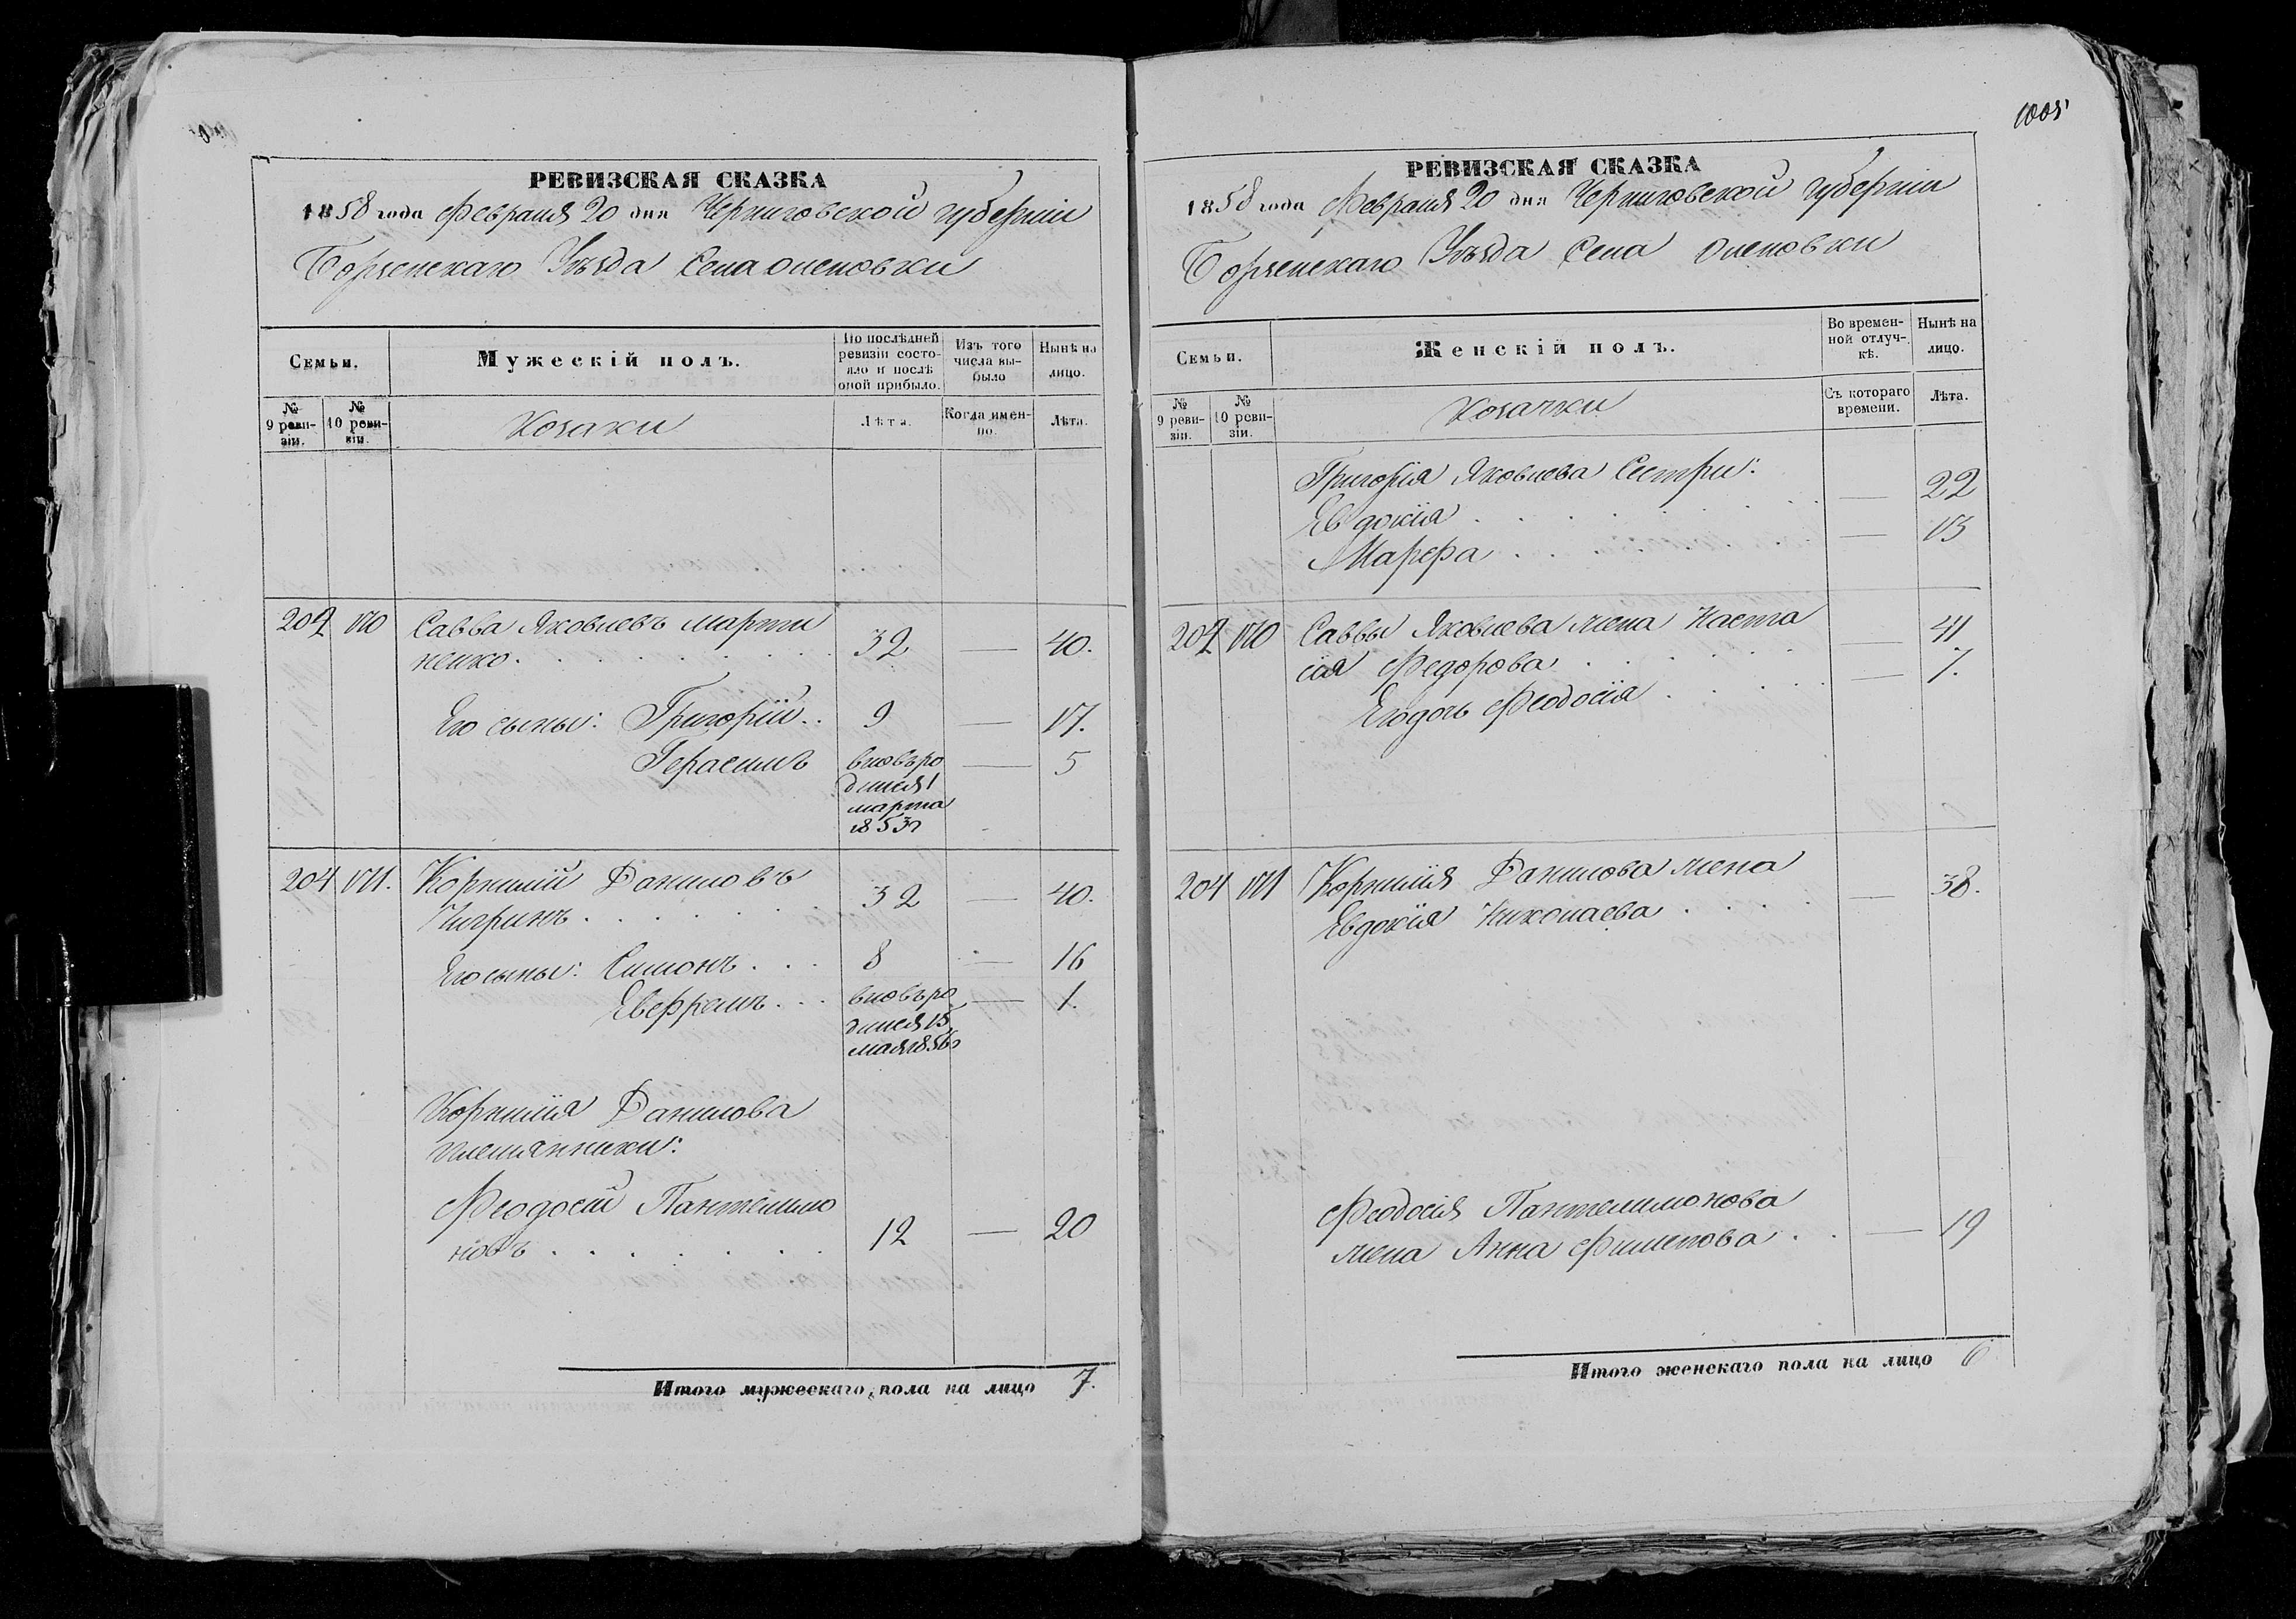 РЕВИЗСКАЯ СКАЗКА
1858 года Февраля 20 дня Черниговской губерніи
Борзенскаго Уѣзда Села Оленовки
Семьи.
Мужескій полъ.
По послѣдней ревизіи состояло и послѣ оной прибыло.
Изъ того числа выбыло
Нынѣ на лицо.
№ 9 ревизіи.
№ 10 ревизіи.
Козаки
Лѣта.
Когда именно.
Лѣта.
202 170 Савва Яковлевъ Марти
ненко 32 — 40.
Его сыны: Григорій 9 — 17.
Герасимъ вновь ро — 5
дился 1
марта
1853
204 171. Корнилій Даниловъ
32 — 40.
Его сыны: Симонъ 8 — 16
Евфремъ вновь ро — 1.
дился 15
мая 1856
Корнилія Данилова
племянники:
Феодосій Пантелимо
новъ 12 — 20
Итого мужескаго пола на лицо 7.
1005
РЕВИЗСКАЯ СКАЗКА
1858 года Февраля 20 дня Черниговской губерніи
Борзенскаго Уѣзда Села Оленовки
Семьи.
Женскій полъ.
Во временной отлучкѣ.
Нынѣ на лицо.
№ 9 ревизіи.
№ 10 ревизіи.
Козачки
Съ котораго времени.
Лѣта.
Григорія Яковлева Сестри:
Евдокія — 22
Марфра — 13
202 170 Саввы Яковлева жена Наста
сія Федорова — 41
Его дочь Феодосія — 7.
204 171 Корнилія Данилова жена
Евдокія Николаева — 38.
Феодосія Пантелимонова
жена Анна Филипова — 19
Итого женскаго пола на лицо 6